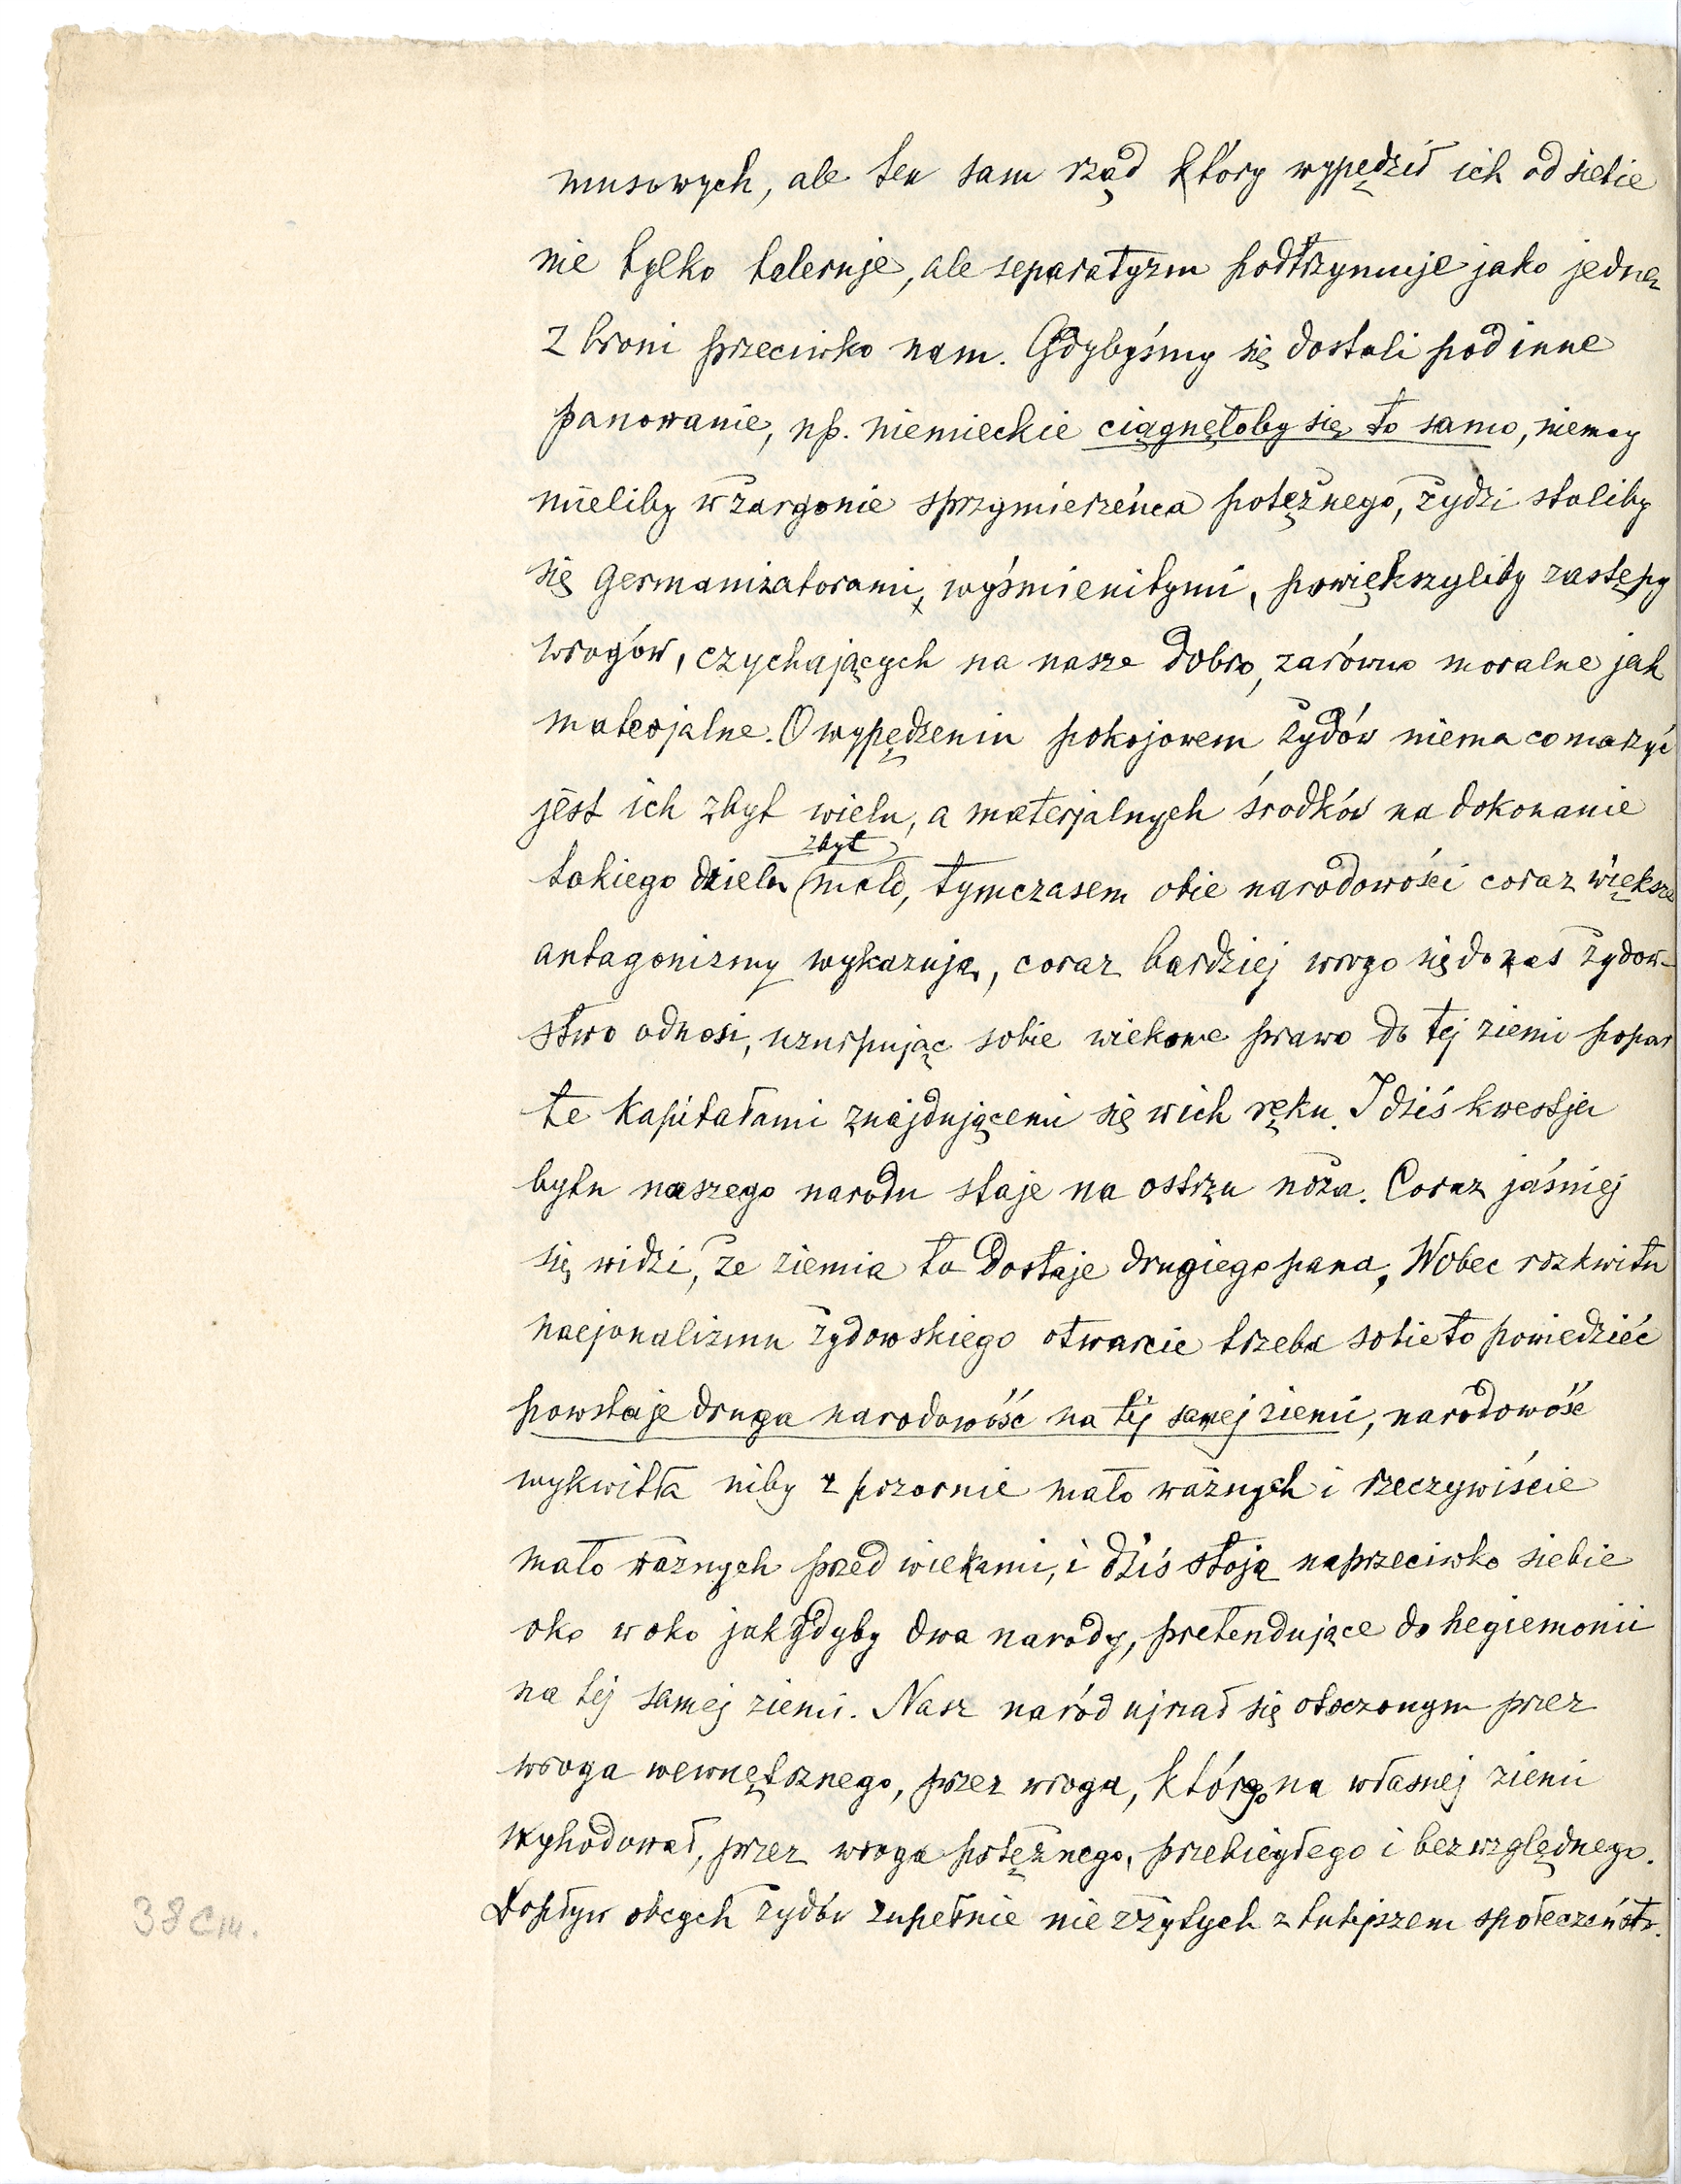 musowych, ale ten sam rząd który wypędził ich od siebie
nie tylko toleruje, ale separatyzm podtrzymuje jako jedną
z broni przeciwko nam. Gdybyśmy się dostali pod inne
panowanie, np. niemieckie ciągnęłoby się to samo, niemcy
mieliby w żargonie sprzymierzeńca potężnego, żydzi staliby
się germanizatorami, wyśmienitymi, powiększyliby zastępy
wrogów, czychających na nasze dobro, zarówno moralne jak
materjalne. O wypędzeniu pokojowem żydów niema co marzyć
jest ich zbyt wielu, a materjalnych środków na dokonanie
zbyt
takiego dzieła mało, tymczasem obie narodowości coraz większe
antagonizmy wykazują, coraz bardziej wrogo się do nas żydow-
stwo odnosi, uzurpując sobie wiekowe prawo do tej ziemi popar
te kapitałami znajdującemi się w ich ręku. I dziś kwestja
bytu naszego narodu staje na ostrzu noża. Coraz jaśniej
się widzi, że ziemia ta dostaje drugiego pana, Wobec rozkwitu
nacjonalizmu żydowskiego otwarcie trzeba sobie to powiedzieć
powstaje druga narodowość na tej samej ziemi, narodowość
wykwitła niby z pozornie mało ważnych i rzeczywiście
mało ważnych przed wiekami, i dziś stoją naprzeciwko siebie
oko w oko jakgdyby dwa narody, pretendujące do hegiemonii
na tej samej ziemi. Nasz naród ujrzał się otoczonym przez
wroga wewnętrznego, przez wroga, którego na własnej ziemi
wyhodował, przez wroga potężnego, przebiegłego i bezwzględnego.
Dopływ obcych żydów zupełnie nie zżytych z tutejszem społeczeństw.
38 cm.